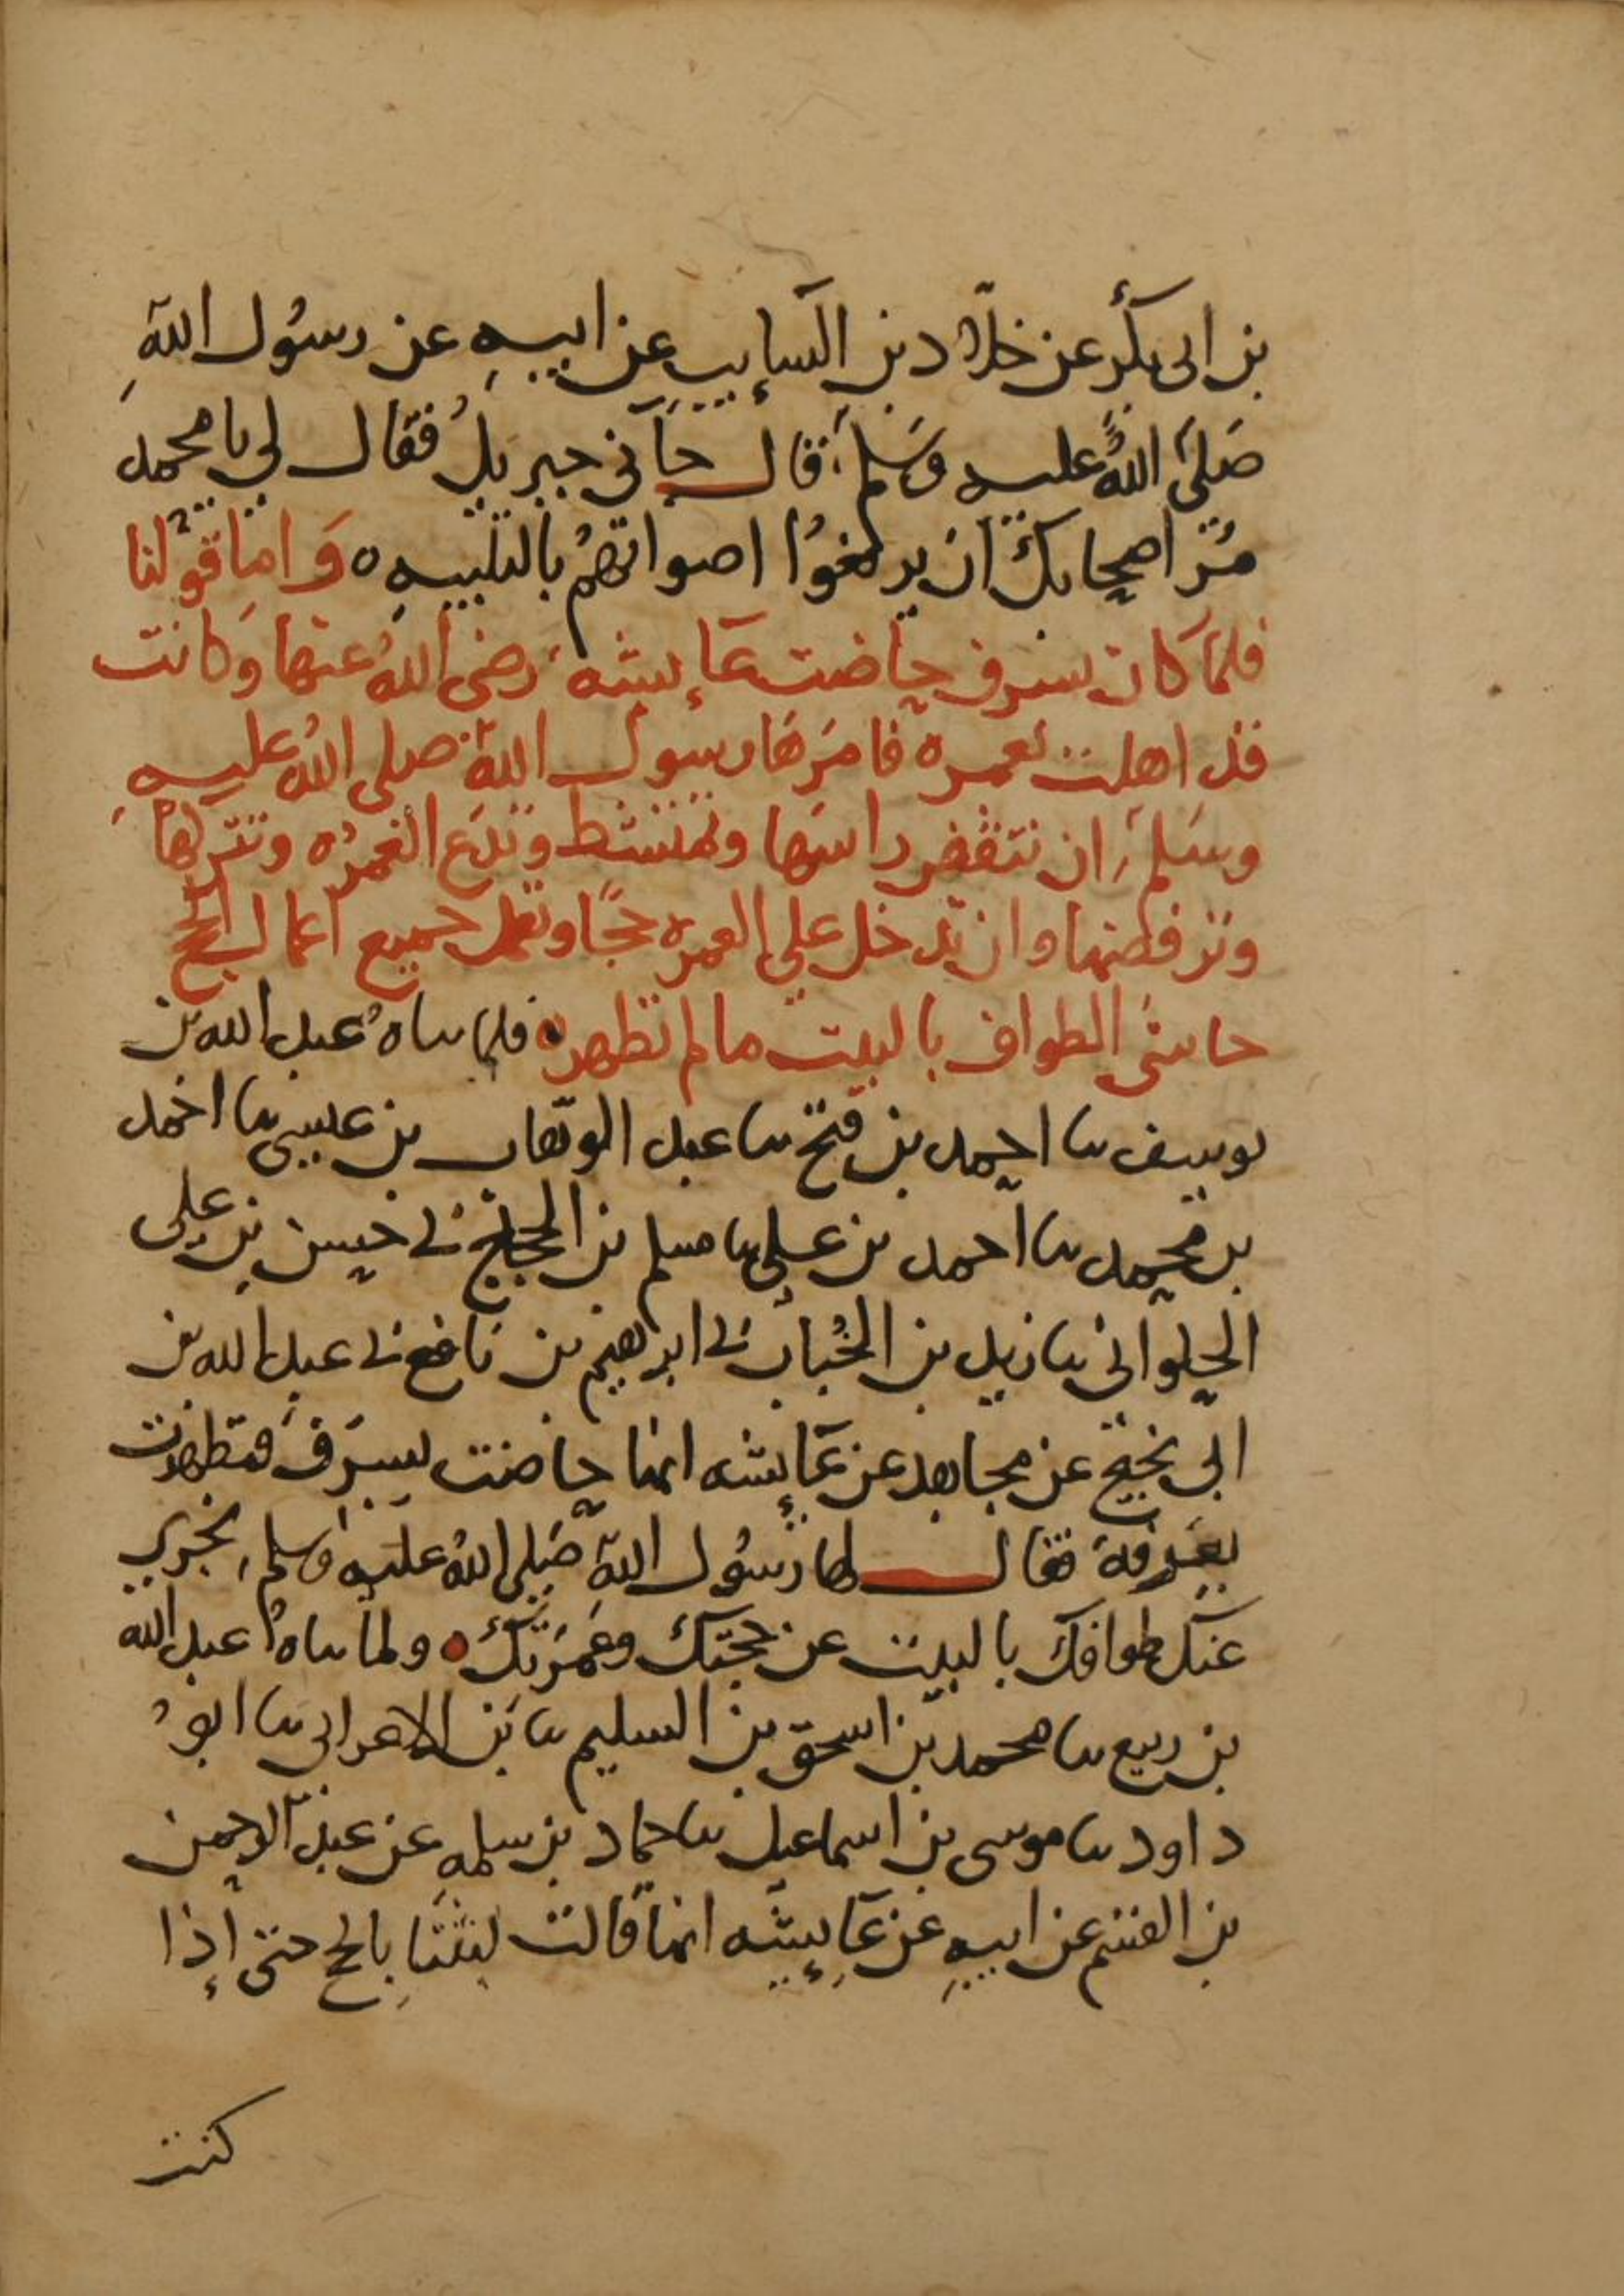 بن ابى بكر عن خلاد بن السايب عن ابيه عن رسول الله
صلى الله عليه وسلم قال جآنى جبريل فقال لي يا محمد
مر اصحابك ان يرفعوا اصواتهم بالتلبيه ه واما قولنا
فلما كان بسرف حاضت عآيشه رضى الله عنها وكانت
قد اهلت بعمره فامرها رسول الله صلى الله عليه
وسلم ان تنقض راسها وتمتشط وتدع العمره وتتركها
وترفضها وان تدخل على العمره حجا وتعمل جميع اعمال الحج
حاشى الطواف بالبيت ما لم تطهر ه فلما ساه عبد الله بن
يوسف سا احمد بن فتح سا عبد الوهاب بن عيسى سا احمد
بن محمد سا احمد بن على سا مسلم بن الحجاج نى حسن بن على
الحلوانى سا زيد بن الحباب نى ابرهيم بن نافع نى عبد الله بن
ابى نجيح عن مجاهد عن عآيشه انها حاضت بسرف فتطهرت
بعرفة فقال لها رسول الله صلى الله عليه وسلم يجزي
عنك طوافك بالبيت عن حجتك وعمرتك ه ولما ساه عبد الله
بن ربيع سا محمد بن اسحق بن السليم سا بن الاعرابى سا ابو
داود سا موسى بن اسماعيل سا حماد بن سلمه عن عبد الرحمن
بن القسم عن ابيه عن عآيشه انها قالت لبينا بالحج حتى إذا
كنت